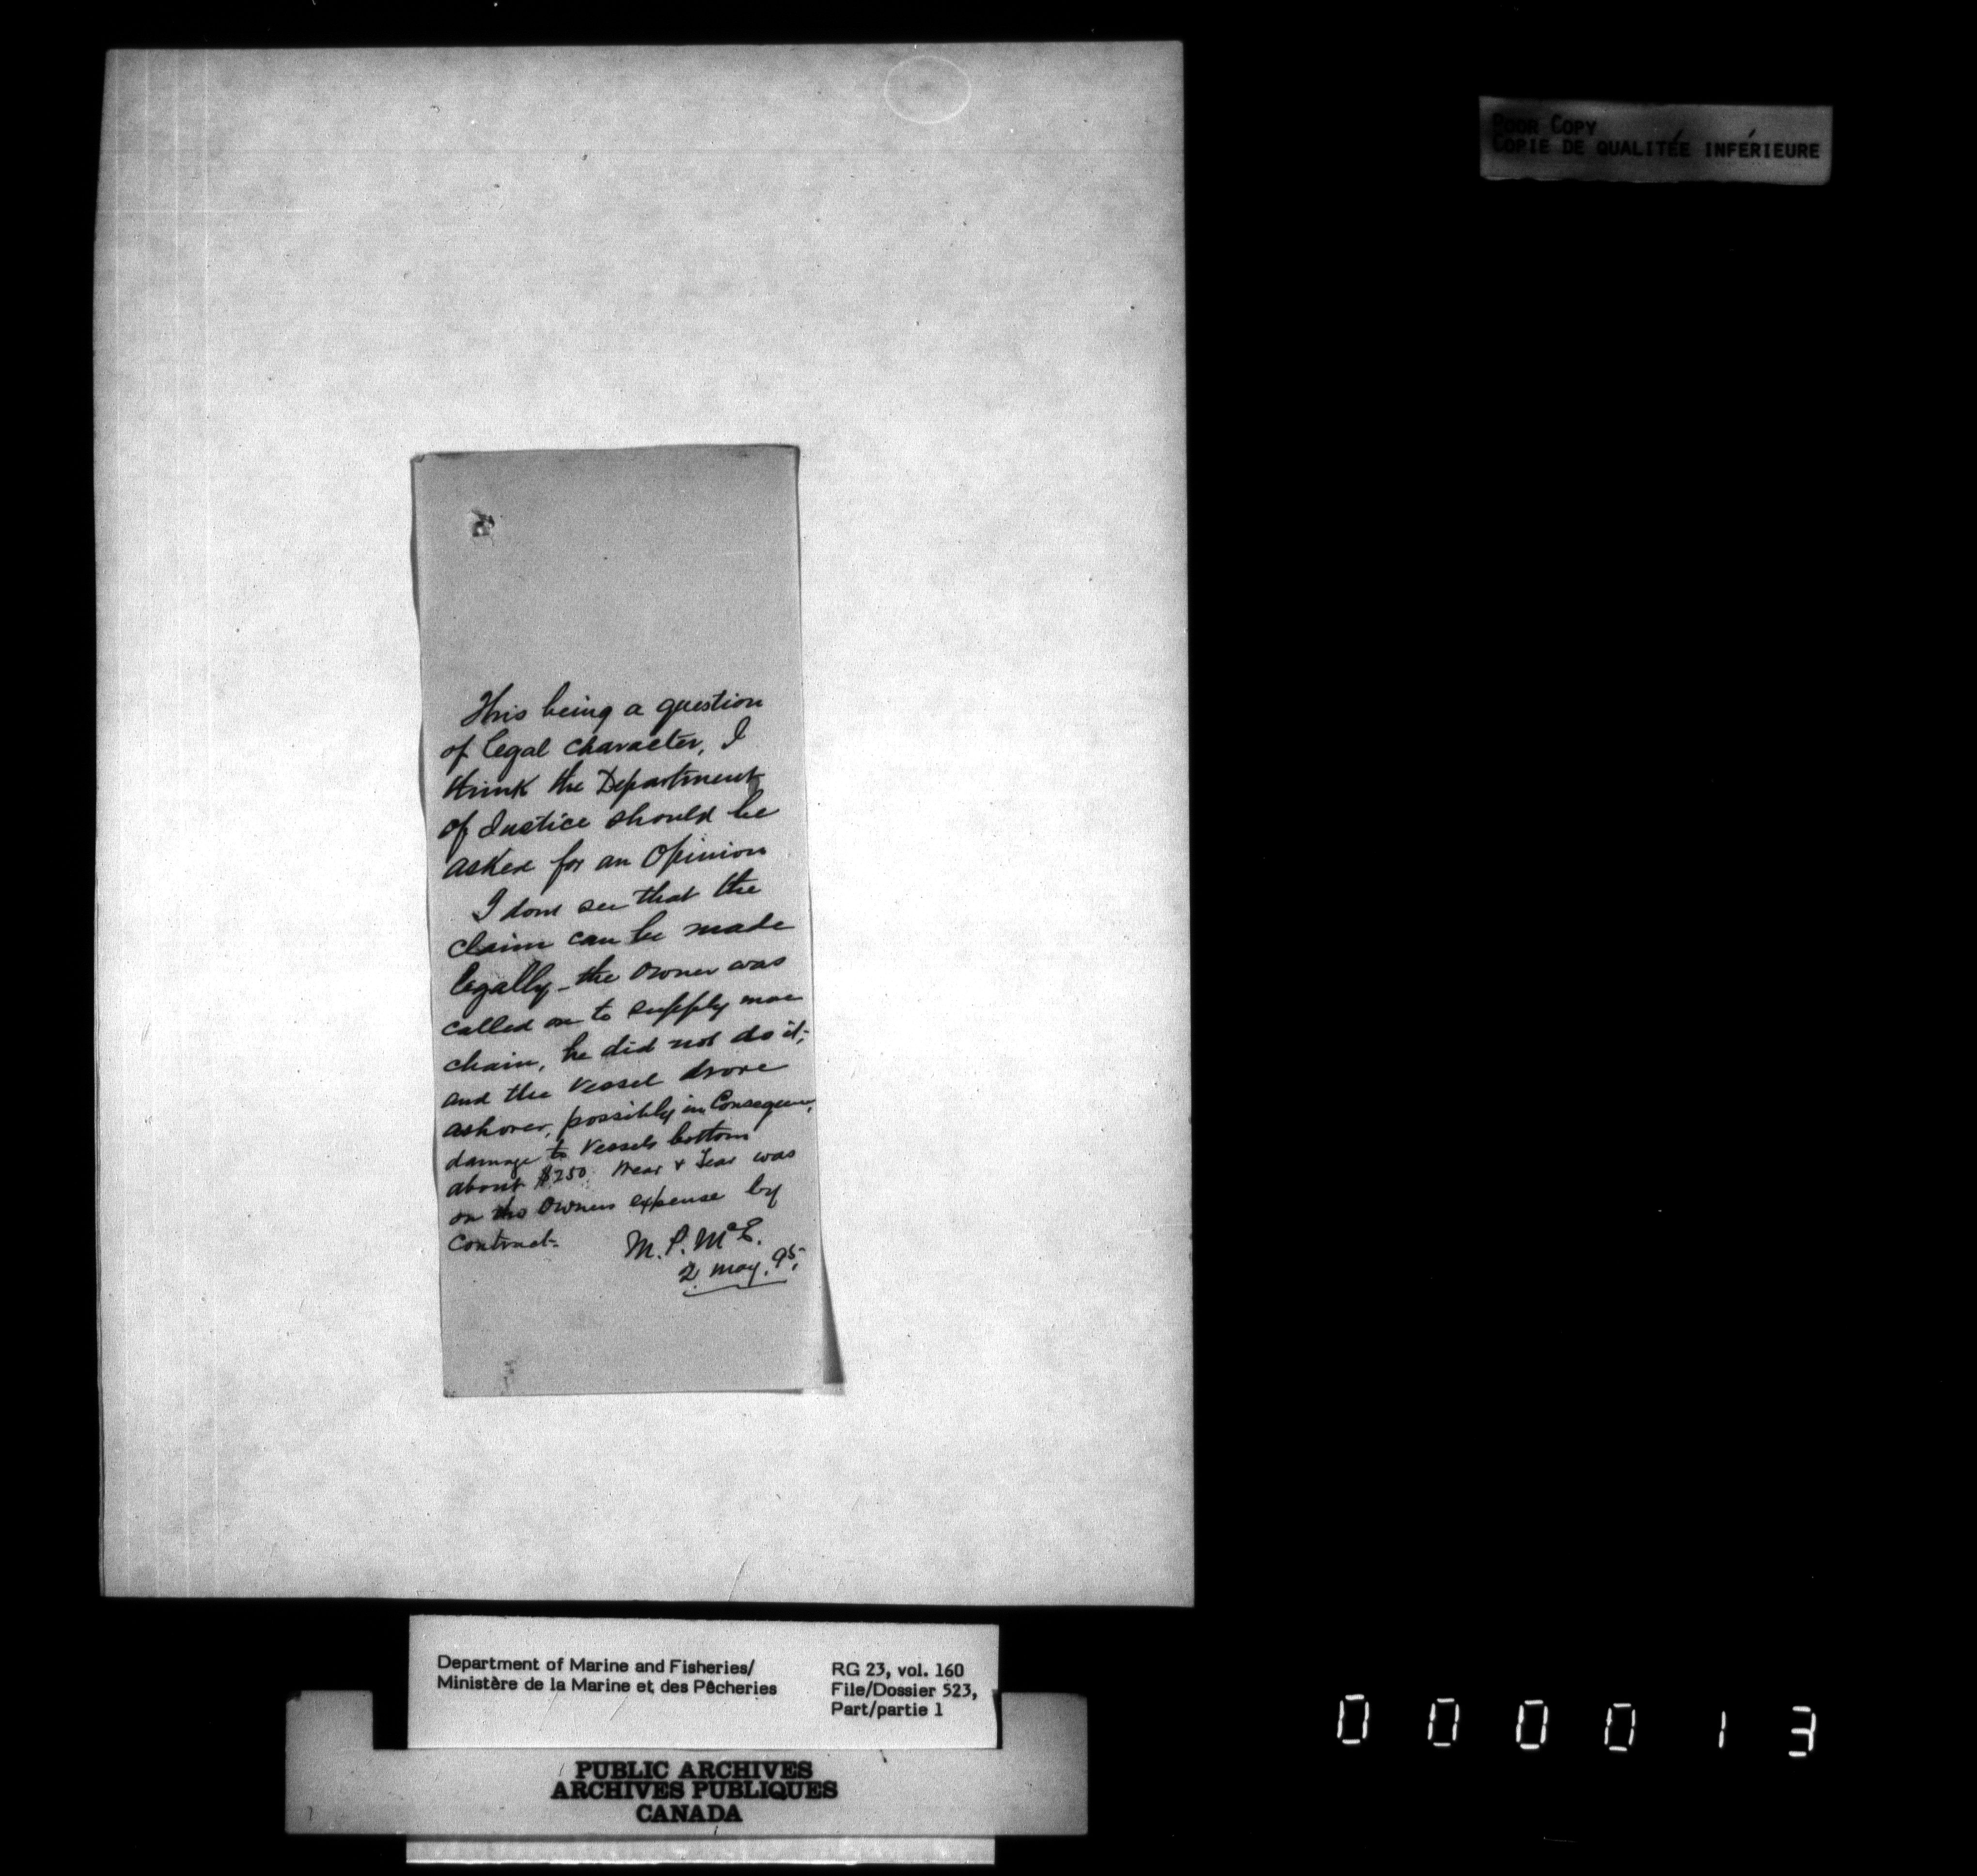 POOR COPY
COPIE DE QUALITÉE INFÉRIEURE
This being a question
of legal character, I
think the Department
of Justice should be
asked for an Opinion
I dont see that the
claim can be made
legally - the owner was
called on to supply more
chain, he did not do it,
and the vessel drove
ashore, possibly in Consequence,
damage to vessels bottom
about $250. Wear & Tear was
on the Owners expense by
Contract.
M. P. McE.
2 May. 95.
Department of Marine and Fisheries/
Ministère de la Marine et des Pêcheries
RG 23, vol. 160
File/Dossier 523,
Part/partie 1
PUBLIC ARCHIVES
ARCHIVES PUBLIQUES
CANADA
000013